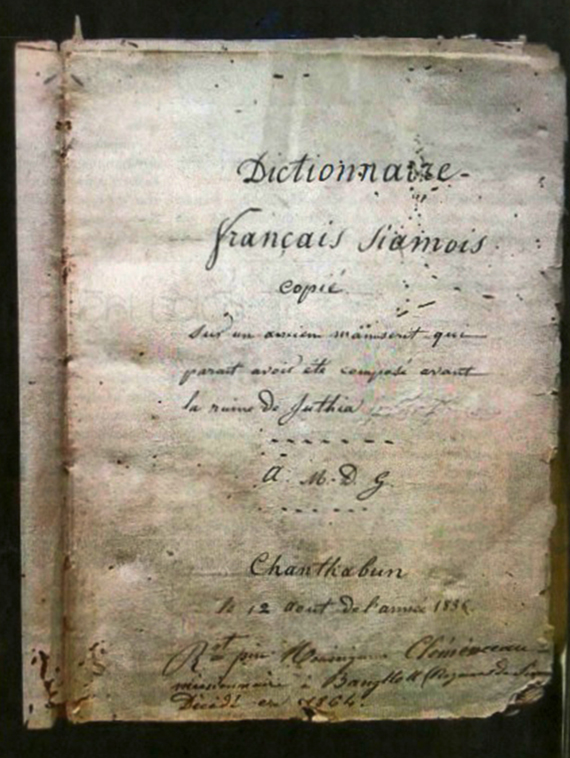 Dictionnaire
français siamois
copié
sur un ancien manuscrit qui
parait avoir été composé avant
la ruine de Juthia
A. M. D. G.
Chanthabun
le 12 aout de l'année 1836
par Clémenceau
missionnaire à Bangkok (Royaume de Siam
Décédé en 1864.